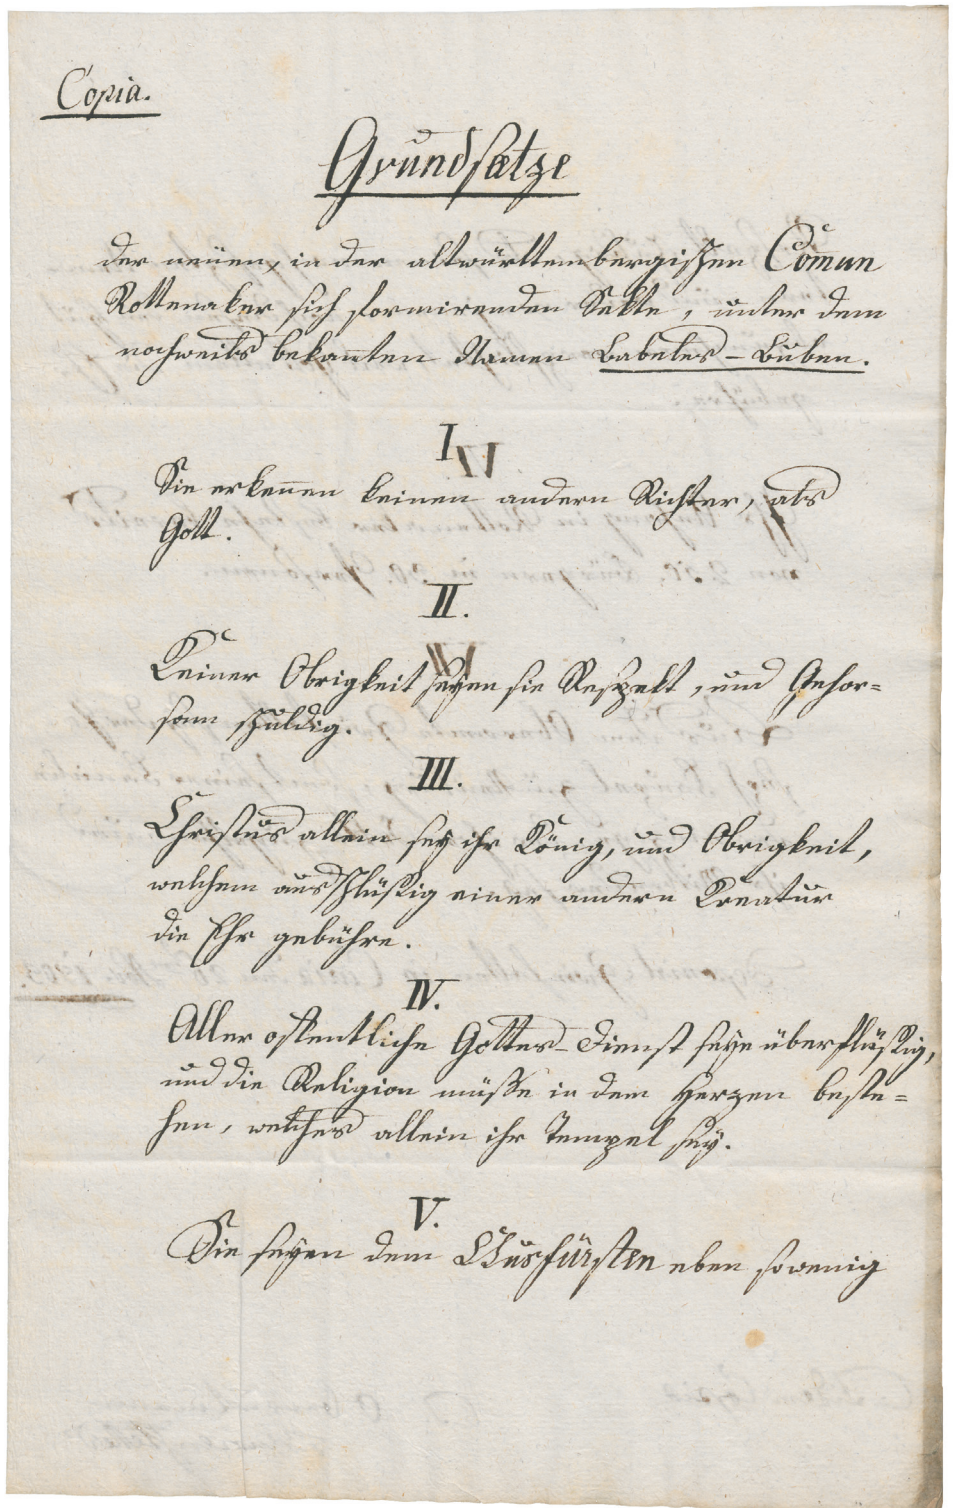 Copia.
Grundsatze
der neuen, in der altwürttembergischen Comun
Rottenaker sich formirenden Sekte, unter dem
nochweils bekannten Namen Babeles-Buben.
I
Sie erkennen keinen andern Richter, als
Gott.
II.
Keiner Obrigkeit seyen sie Respekt, und Gehor=
sam schuldig.
III.
Christus allein sey ihr König, und Obrigkeit,
welchem ausschlüßig einer andern Kreatur
die Ehr gebühre.
IV.
Aller offentliche Gottes-Dienst seye überflüßig,
und die Religion müsse in dem Herzen beste=
hen, welches allein ihr Tempel sey.
V.
Sie seyen dem Churfürsten eben sowenig